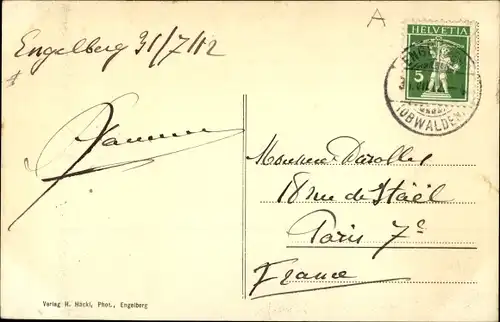 Engelberg 31/7/12
A
HELVETIA
5
(OBWALDEN)
Monsieur Darolles
18 rue de Staël
Paris 7e
France
Verlag H. Höckl, Phot., Engelberg